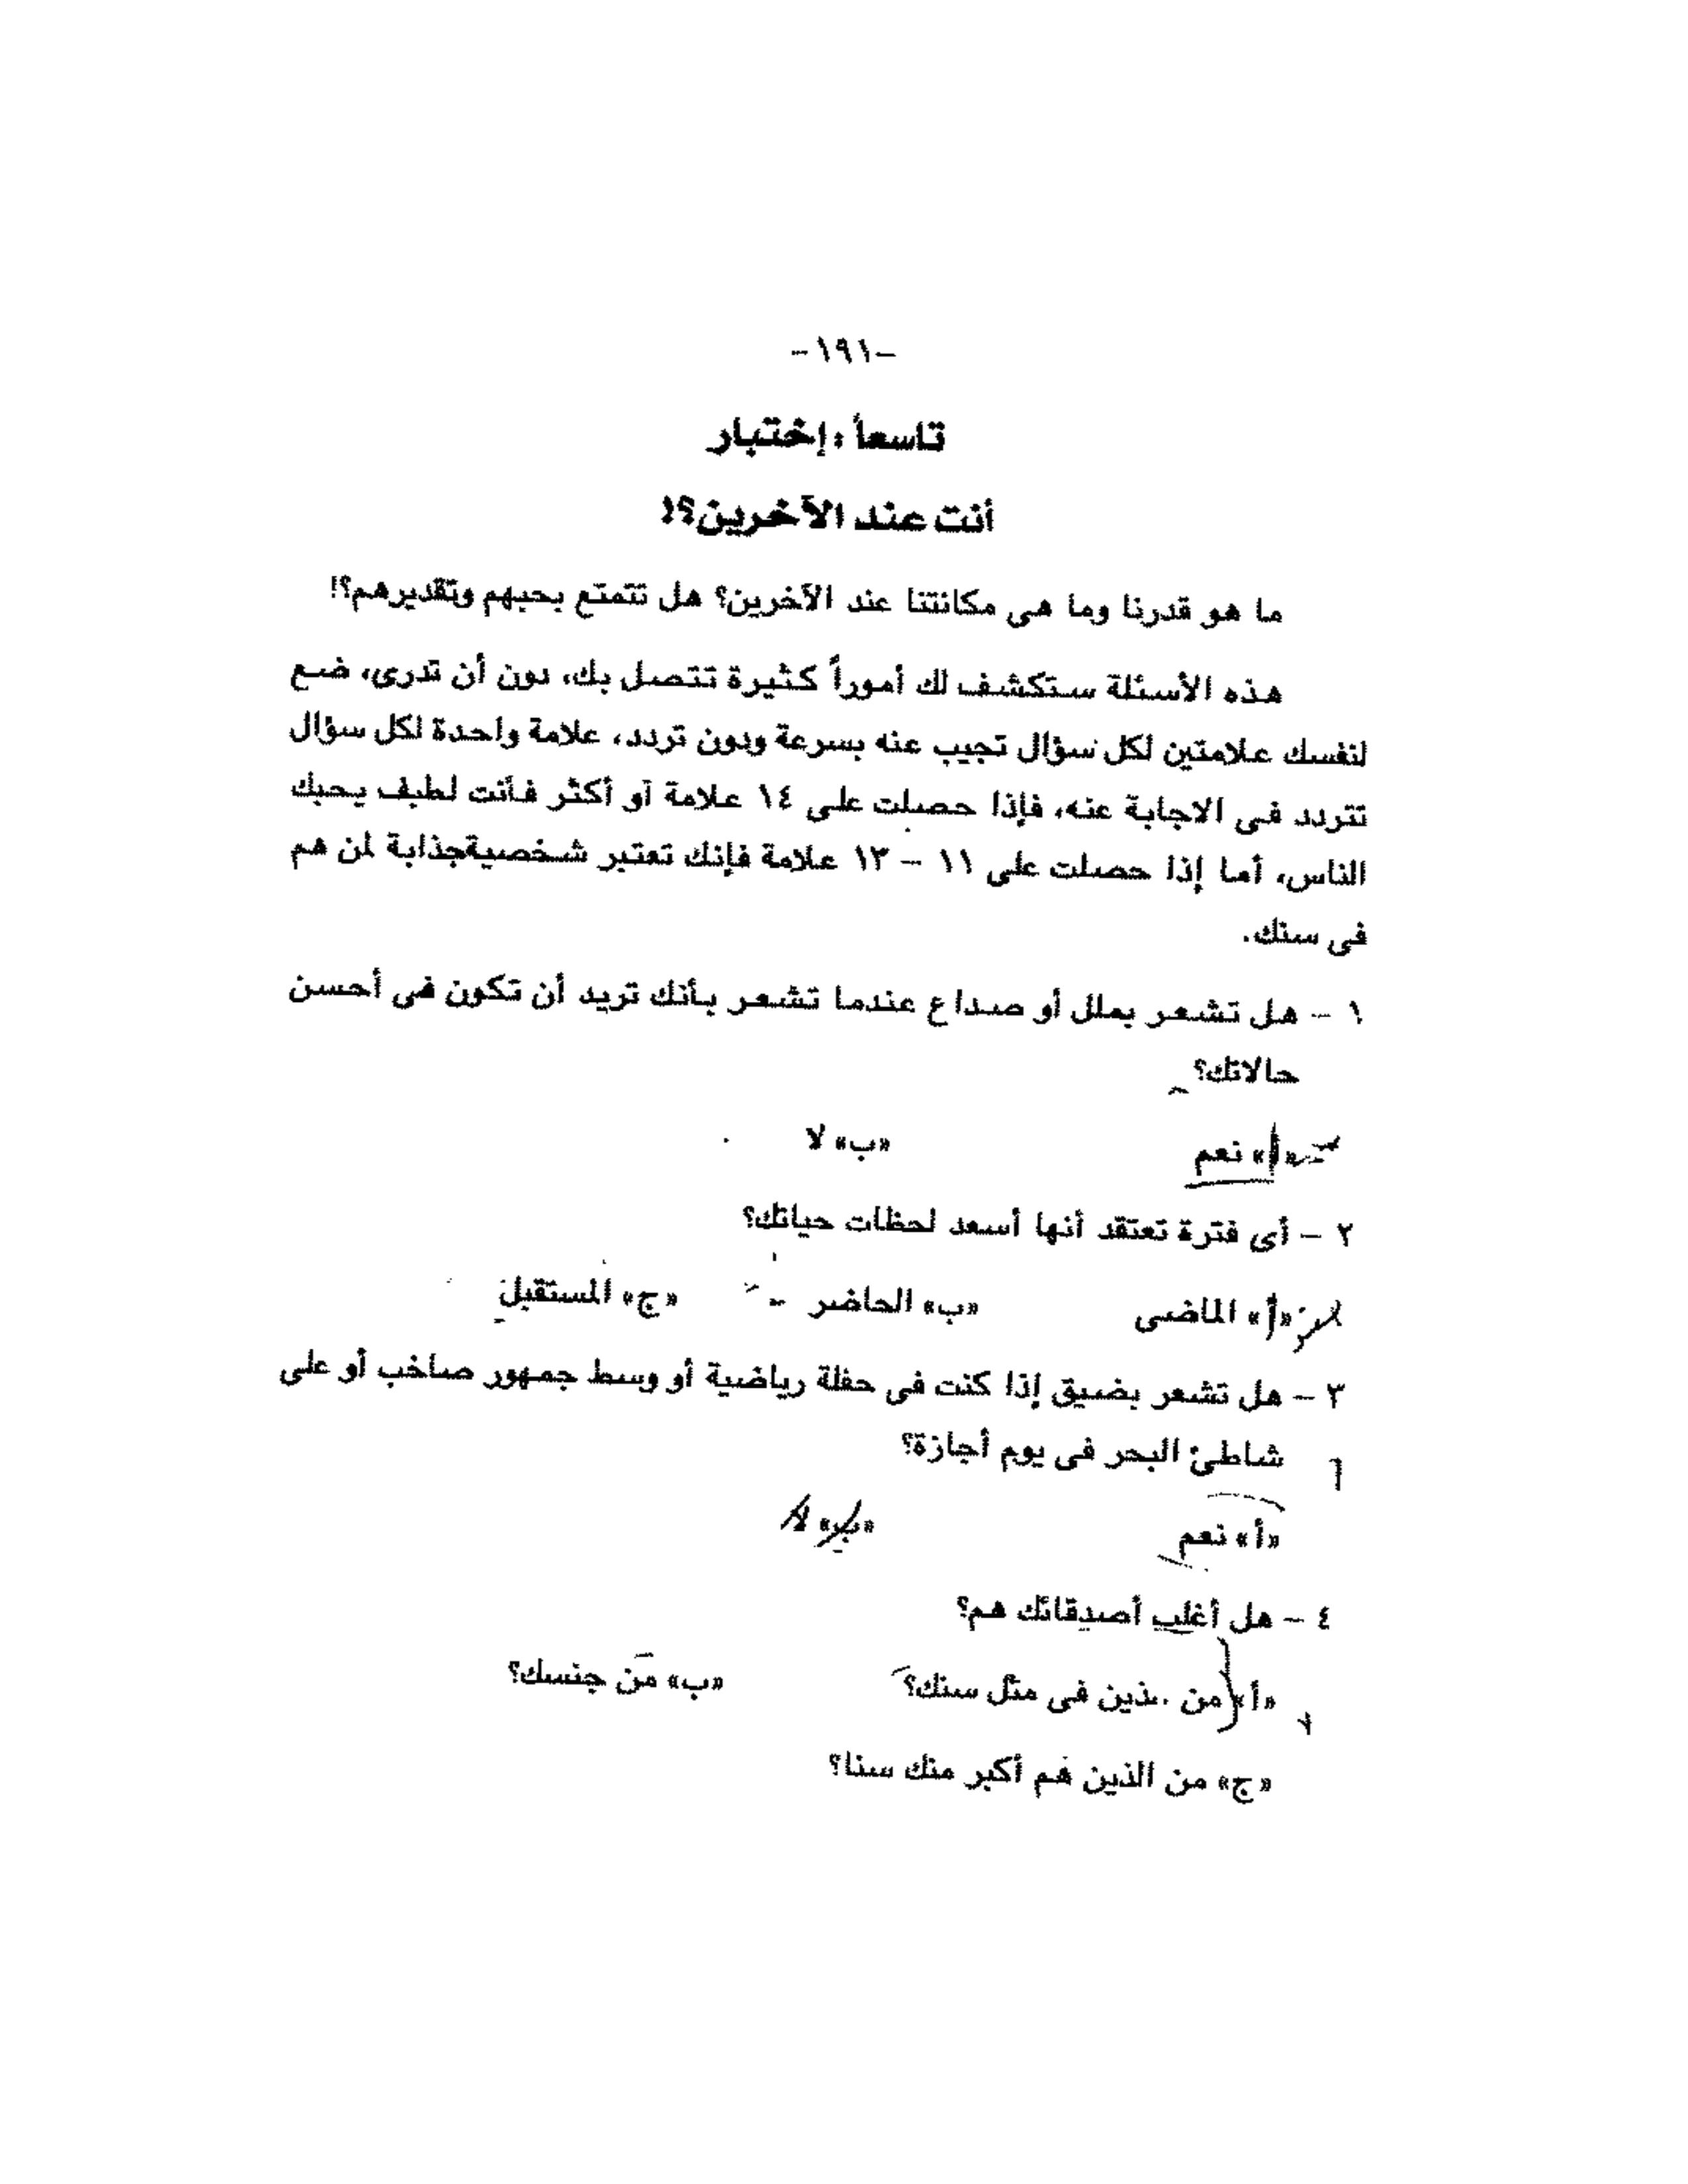 -١٩١-
تاسعاً : إختبار
أنت عند الآخرين؟!
ما هو قدرنا وما هى مكانتنا عند الآخرين؟ هل نتمتع بحبهم وتقديرهم؟!
هذه الأسئلة ستكشف لك أموراً كثيرة تتصل بك، دون أن تدرى، ضع
لنفسك علامتين لكل سؤال تجيب عنه بسرعة وبدون تردد، علامة واحدة لكل سؤال
تتردد فى الاجابة عنه، فإذا حصلت على ١٤ علامة أو أكثر فأنت لطيف يحبك
الناس، أما إذا حصلت على ١١ - ١٣ علامة فإنك تعتبر شخصيةجذابة لمن هم
فى سنك.
١ - هل تشعر بملل أو صداع عندما تشعر بأنك تريد أن تكون فى أحسن
حالاتك؟
«أ» نعم «ب» لا
٢ - أى فترة تعتقد أنها أسعد لحظات حياتك؟
«أ» الماضى «ب» الحاضر «ج» المستقبل
٣ - هل تشعر بضيق إذا كنت فى حفلة رياضية أو وسط جمهور صاخب أو على
شاطئ البحر فى يوم أجازة؟
«أ» نعم «ب» لا
٤ - هل أغلب أصدقائك هم؟
«أ» من فى مثل سنك؟ «ب» من جنسك؟
«ج» من الذين هم أكبر منك سنا؟